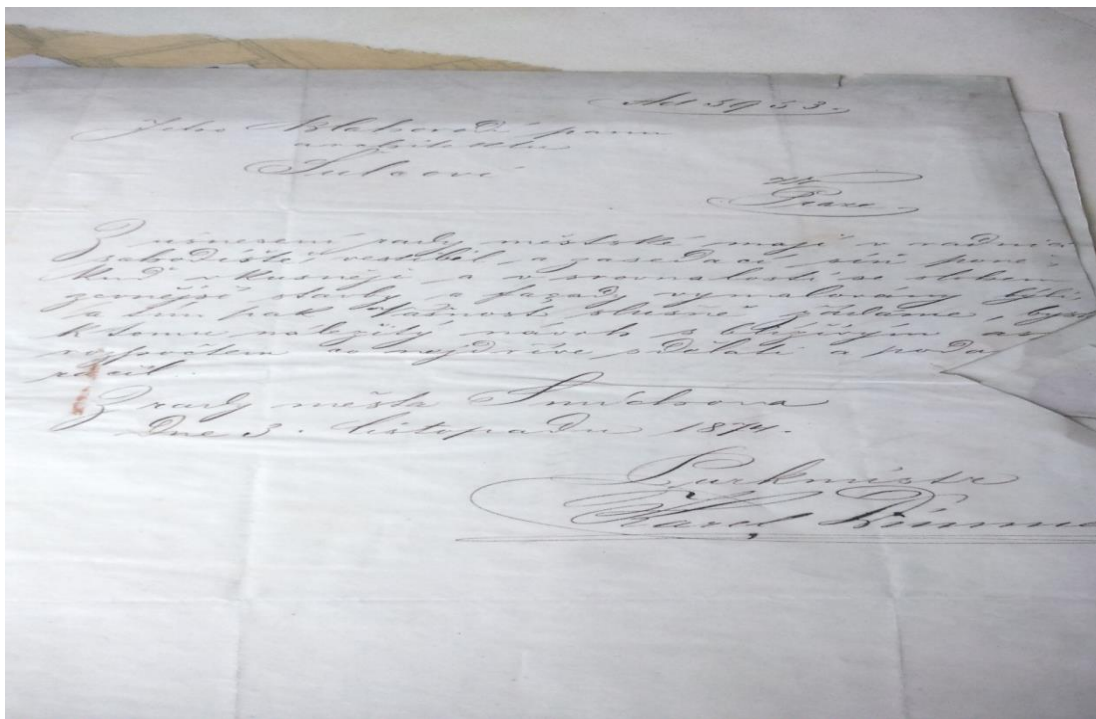 Ad 5953.
Jeho Blahorodí panu
architektu
Šulcovi
v
Praze
Z usnesení rady městské mají v radnici
schodiště, vestibul, a zasedací síň poně-
kud vkusněji a v srovnalosti se slohem
zevnější stavby a fazady vymalovány býti,
a síň pak slušně zdělána, byste
k tomu náležitý návrh s
rozpočtem co nejdříve sdělati a poda
ráčil.
Z rady města Smíchova
dne 3. listopadu 1874.
Purkmistr
Karel